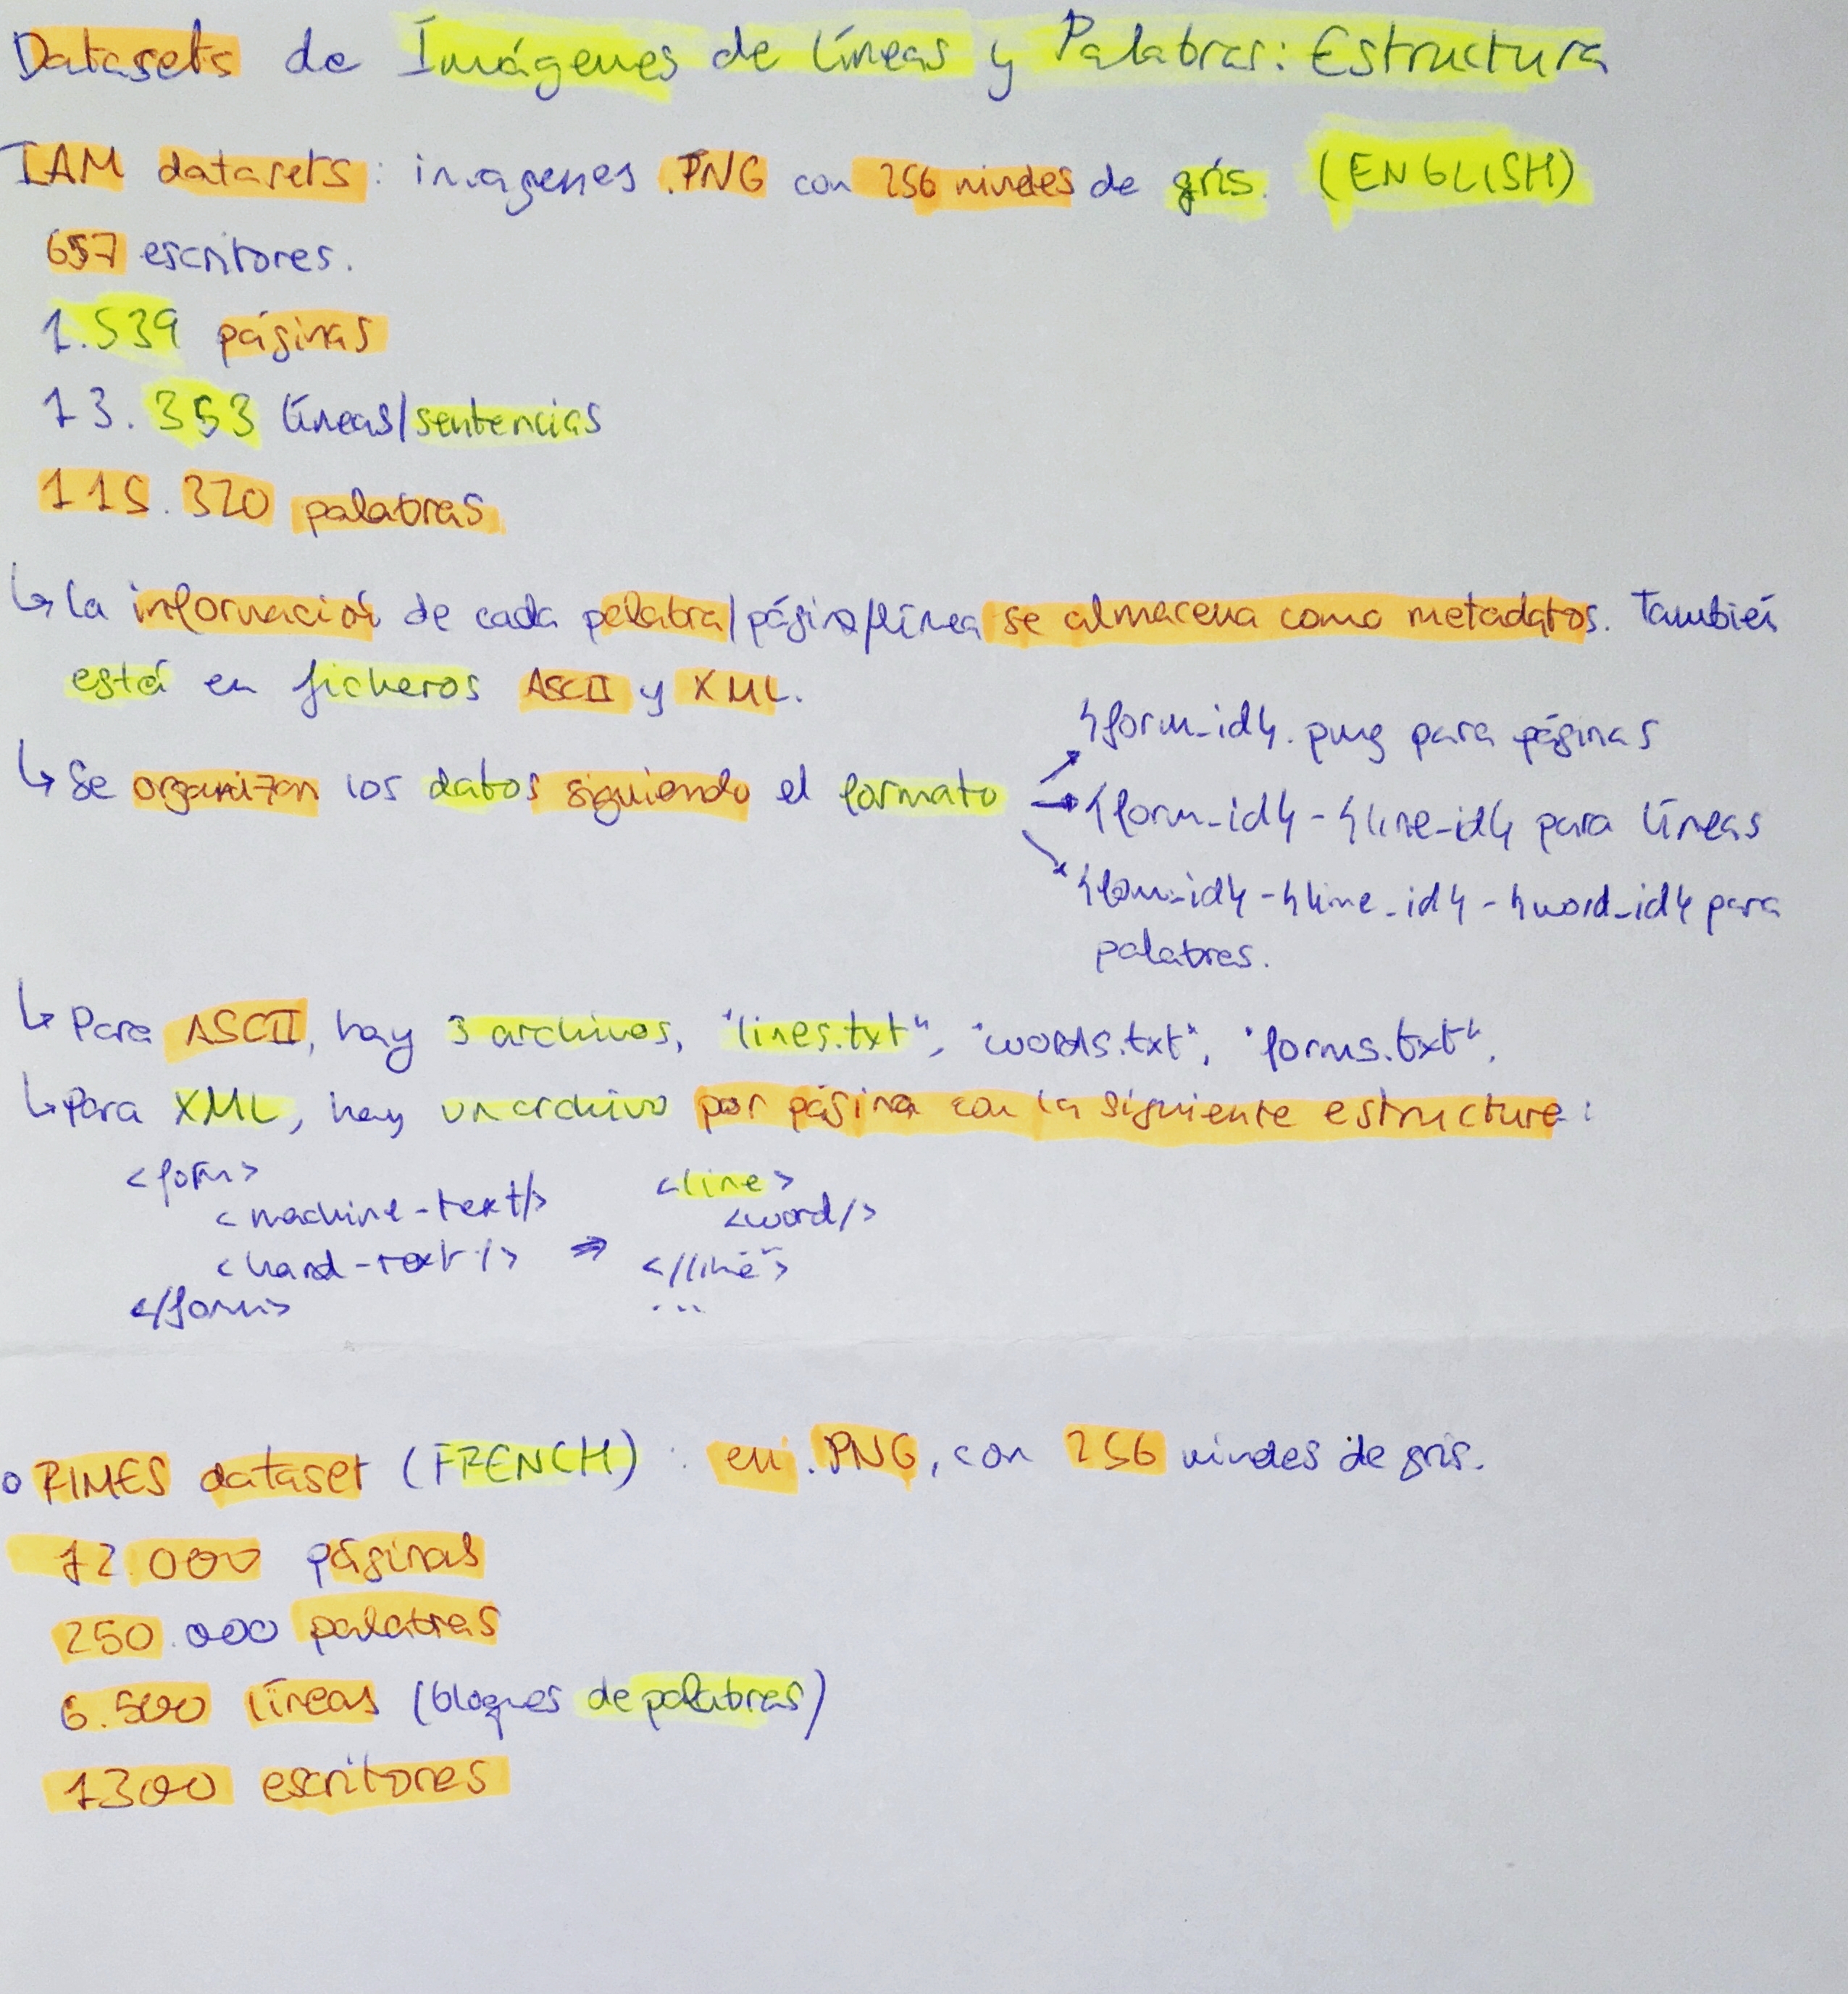 Datasets de Imágenes de líneas y Palabras: Estructura
IAM datasets: imagenes .PNG con 256 niveles de gris. (ENGLISH)
657 escritores.
1.539 páginas
13.353 líneas/sentencias
115.320 palabras
↳ la información de cada palabra/página/línea se almacena como metadatos. También
está en ficheros ASCII y XML.
↳ Se organizan los datos siguiendo el formato
→ {form_id}.png para páginas
→ {form_id}-{line_id} para líneas
→ {form_id}-{line_id}-{word_id} para
palabras.
↳ Para ASCII, hay 3 archivos, "lines.txt", "words.txt", "forms.txt".
↳ Para XML, hay un archivo por página con la siguiente estructura:
<form>
<machine-text/>
<hand-text/> ⇒
</form>
<line>
<word/>
</line>
...
o RIMES dataset (FRENCH) : en .PNG, con 256 niveles de gris.
12.000 páginas
250.000 palabras
6.500 líneas (bloques de palabras)
1300 escritores